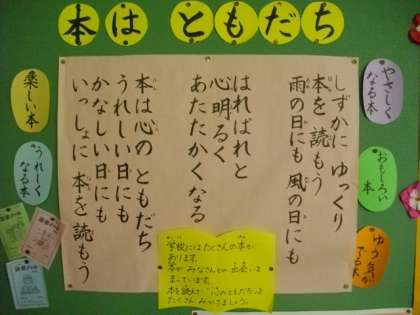 本は ともだち
しずかに ゆっくり
本を 読もう
雨の日にも 風の日にも
はればれと
心明るく
あたたかくなる
本は心の ともだち
うれしい日にも
かなしい日にも
いっしょに 本を読もう
やさしく
なる本
おもしろい
本
ゆう気が
でる本
楽しい本
うれしく
なる本
学校にはたくさんの本が
あります。
本が みなさんとの 出会いを
まっています。
本を読んで "心のともだち"を
たくさん みつけましょう。